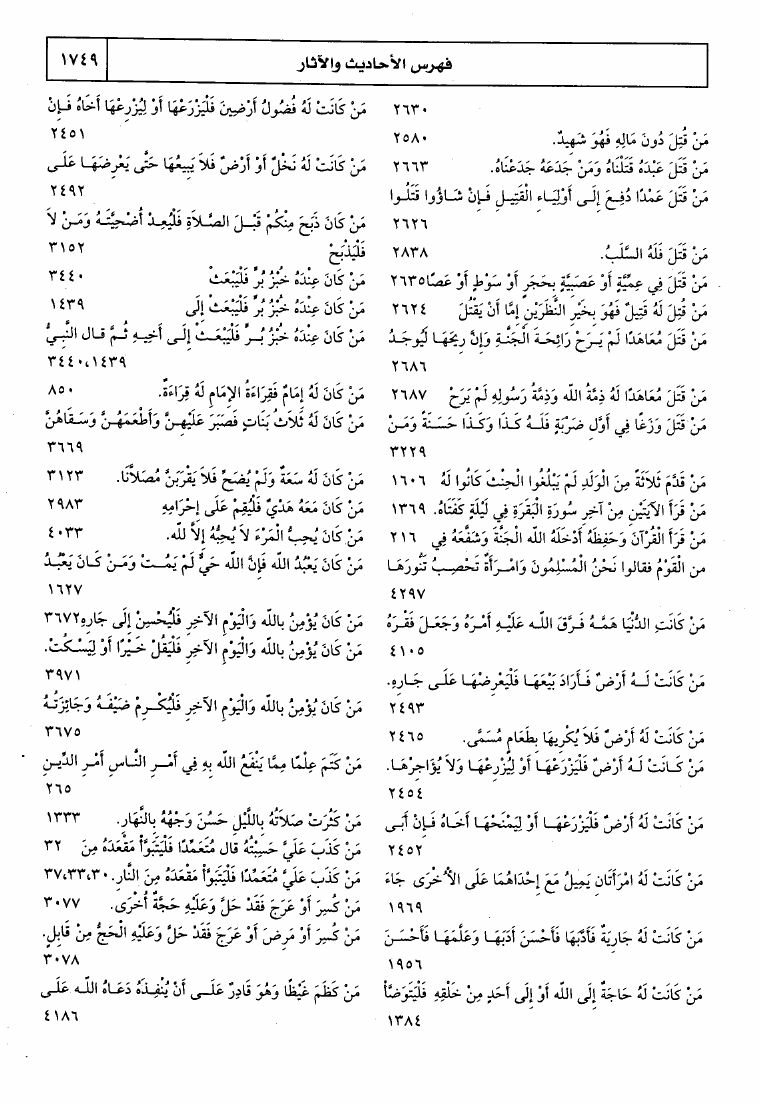 فهرس الأحاديث والآثار
١٧٤٩
٢٦٣٠
مَنْ قُتِلَ دُونَ مَالِهِ فَهُوَ شَهِيدٌ. ٢٥٨٠
مَنْ قَتَلَ عَبْدَهُ قَتَلْنَاهُ وَمَنْ جَدَعَهُ جَدَعْنَاهُ. ٢٦٦٣
مَنْ قَتَلَ عَمْدًا دُفِعَ إِلَى أَوْلِيَاءِ الْقَتِيلِ فَإِنْ شَاؤُوا قَتَلُوا
٢٦٢٦
مَنْ قَتَلَ فَلَهُ السَّلَبُ. ٢٨٣٨
مَنْ قَتَلَ فِي عِمِّيَّةٍ أَوْ عَصَبِيَّةٍ بِحَجَرٍ أَوْ سَوْطٍ أَوْ عَصًا ٢٦٣٥
مَنْ قُتِلَ لَهُ قَتِيلٌ فَهُوَ بِخَيْرِ النَّظَرَيْنِ إِمَّا أَنْ يَقْتُلَ ٢٦٢٤
مَنْ قَتَلَ مُعَاهَدًا لَمْ يَرَحْ رَائِحَةَ الْجَنَّةِ وَإِنَّ رِيحَهَا لَيُوجَدُ
٢٦٨٦
مَنْ قَتَلَ مُعَاهَدًا لَهُ ذِمَّةُ اللَّه وَذِمَّةُ رَسُولِهِ لَمْ يَرَحْ ٢٦٨٧
مَنْ قَتَلَ وَزَغًا فِي أَوَّلِ ضَرْبَةٍ فَلَهُ كَذَا وَكَذَا حَسَنَةً وَمَنْ
٣٢٢٩
مَنْ قَدَّمَ ثَلَاثَةً مِنَ الْوَلَدِ لَمْ يَبْلُغُوا الْحِنْثَ كَانُوا لَهُ ١٦٠٦
مَنْ قَرَأَ الآيَتَيْنِ مِنْ آخِرِ سُورَةِ الْبَقَرَةِ فِي لَيْلَةٍ كَفَتَاهُ. ١٣٦٩
مَنْ قَرَأَ الْقُرْآنَ وَحَفِظَهُ أَدْخَلَهُ اللَّه الْجَنَّةَ وَشَفَّعَهُ فِي ٢١٦
من الْقَوْمُ فقالوا نَحْنُ الْمُسْلِمُونَ وَامْرَأَةٌ تَحْصِبُ تَنُّورَهَا
٤٢٩٧
مَنْ كَانَتِ الدُّنْيَا هَمَّهُ فَرَّقَ اللَّه عَلَيْهِ أَمْرَهُ وَجَعَلَ فَقْرَهُ
٤١٠٥
مَنْ كَانَتْ لَهُ أَرْضٌ فَأَرَادَ بَيْعَهَا فَلْيَعْرِضْهَا عَلَى جَارِهِ.
٢٤٩٣
مَنْ كَانَتْ لَهُ أَرْضٌ فَلَا يُكْرِيهَا بِطَعَامٍ مُسَمًّى. ٢٤٦٥
مَنْ كَانَتْ لَهُ أَرْضٌ فَلْيَزْرَعْهَا أَوْ لِيُزْرِعْهَا وَلَا يُؤَاجِرْهَا.
٢٤٥٤
مَنْ كَانَتْ لَهُ أَرْضٌ فَلْيَزْرَعْهَا أَوْ لِيَمْنَحْهَا أَخَاهُ فَإِنْ أَبَى
٢٤٥٢
مَنْ كَانَتْ لَهُ امْرَأَتَانِ يَمِيلُ مَعَ إِحْدَاهُمَا عَلَى الأُخْرَى جَاءَ
١٩٦٩
مَنْ كَانَتْ لَهُ جَارِيَةٌ فَأَدَّبَهَا فَأَحْسَنَ أَدَبَهَا وَعَلَّمَهَا فَأَحْسَنَ
١٩٥٦
مَنْ كَانَتْ لَهُ حَاجَةٌ إِلَى اللَّه أَوْ إِلَى أَحَدٍ مِنْ خَلْقِهِ فَلْيَتَوَضَّأْ
١٣٨٤
مَنْ كَانَتْ لَهُ فُضُولُ أَرَضِينَ فَلْيَزْرَعْهَا أَوْ لِيُزْرِعْهَا أَخَاهُ فَإِنْ
٢٤٥١
مَنْ كَانَتْ لَهُ نَخْلٌ أَوْ أَرْضٌ فَلَا يَبِيعُهَا حَتَّى يَعْرِضَهَا عَلَى
٢٤٩٢
مَنْ كَانَ ذَبَحَ مِنْكُمْ قَبْلَ الصَّلَاةِ فَلْيُعِدْ أُضْحِيَّتَهُ وَمَنْ لَا
فَلْيَذْبَحْ ٣١٥٢
مَنْ كَانَ عِنْدَهُ خُبْزُ بُرٍّ فَلْيَبْعَثْ ٣٤٤٠
مَنْ كَانَ عِنْدَهُ خُبْزُ بُرٍّ فَلْيَبْعَثْ إِلَى ١٤٣٩
مَنْ كَانَ عِنْدَهُ خُبْزُ بُرٍّ فَلْيَبْعَثْ إِلَى أَخِيهِ ثُمَّ قال النَّبِيُّ
٣٤٤٠،١٤٣٩
مَنْ كَانَ لَهُ إِمَامٌ فَقِرَاءَةُ الإِمَامِ لَهُ قِرَاءَةٌ. ٨٥٠
مَنْ كَانَ لَهُ ثَلَاثُ بَنَاتٍ فَصَبَرَ عَلَيْهِنَّ وَأَطْعَمَهُنَّ وَسَقَاهُنَّ
٣٦٦٩
مَنْ كَانَ لَهُ سَعَةٌ وَلَمْ يُضَحِّ فَلَا يَقْرَبَنَّ مُصَلَّانَا. ٣١٢٣
مَنْ كَانَ مَعَهُ هَدْيٌ فَلْيُقِمْ عَلَى إِحْرَامِهِ ٢٩٨٣
مَنْ كَانَ يُحِبُّ الْمَرْءَ لَا يُحِبُّهُ إِلَّا للَّه. ٤٠٣٣
مَنْ كَانَ يَعْبُدُ اللَّه فَإِنَّ اللَّه حَيٌّ لَمْ يَمُتْ وَمَنْ كَانَ يَعْبُدُ
١٦٢٧
مَنْ كَانَ يُؤْمِنُ بِاللَّه وَالْيَوْمِ الآخِرِ فَلْيُحْسِنْ إِلَى جَارِهِ ٣٦٧٢
مَنْ كَانَ يُؤْمِنُ بِاللَّه وَالْيَوْمِ الآخِرِ فَلْيَقُلْ خَيْرًا أَوْ لِيَسْكُتْ.
٣٩٧١
مَنْ كَانَ يُؤْمِنُ بِاللَّه وَالْيَوْمِ الآخِرِ فَلْيُكْرِمْ ضَيْفَهُ وَجَائِزَتُهُ
٣٦٧٥
مَنْ كَتَمَ عِلْمًا مِمَّا يَنْفَعُ اللَّه بِهِ فِي أَمْرِ النَّاسِ أَمْرِ الدِّينِ
٢٦٥
مَنْ كَثُرَتْ صَلَاتُهُ بِاللَّيْلِ حَسُنَ وَجْهُهُ بِالنَّهَارِ. ١٣٣٣
مَنْ كَذَبَ عَلَيَّ حَسِبْتُهُ قال مُتَعَمِّدًا فَلْيَتَبَوَّأْ مَقْعَدَهُ مِنَ ٣٢
مَنْ كَذَبَ عَلَيَّ مُتَعَمِّدًا فَلْيَتَبَوَّأْ مَقْعَدَهُ مِنَ النَّارِ. ٣٧،٣٣،٣٠
مَنْ كُسِرَ أَوْ عَرَجَ فَقَدْ حَلَّ وَعَلَيْهِ حَجَّةٌ أُخْرَى. ٣٠٧٧
مَنْ كُسِرَ أَوْ مَرِضَ أَوْ عَرَجَ فَقَدْ حَلَّ وَعَلَيْهِ الْحَجُّ مِنْ قَابِلٍ.
٣٠٧٨
مَنْ كَظَمَ غَيْظًا وَهُوَ قَادِرٌ عَلَى أَنْ يُنْفِذَهُ دَعَاهُ اللَّه عَلَى
٤١٨٦